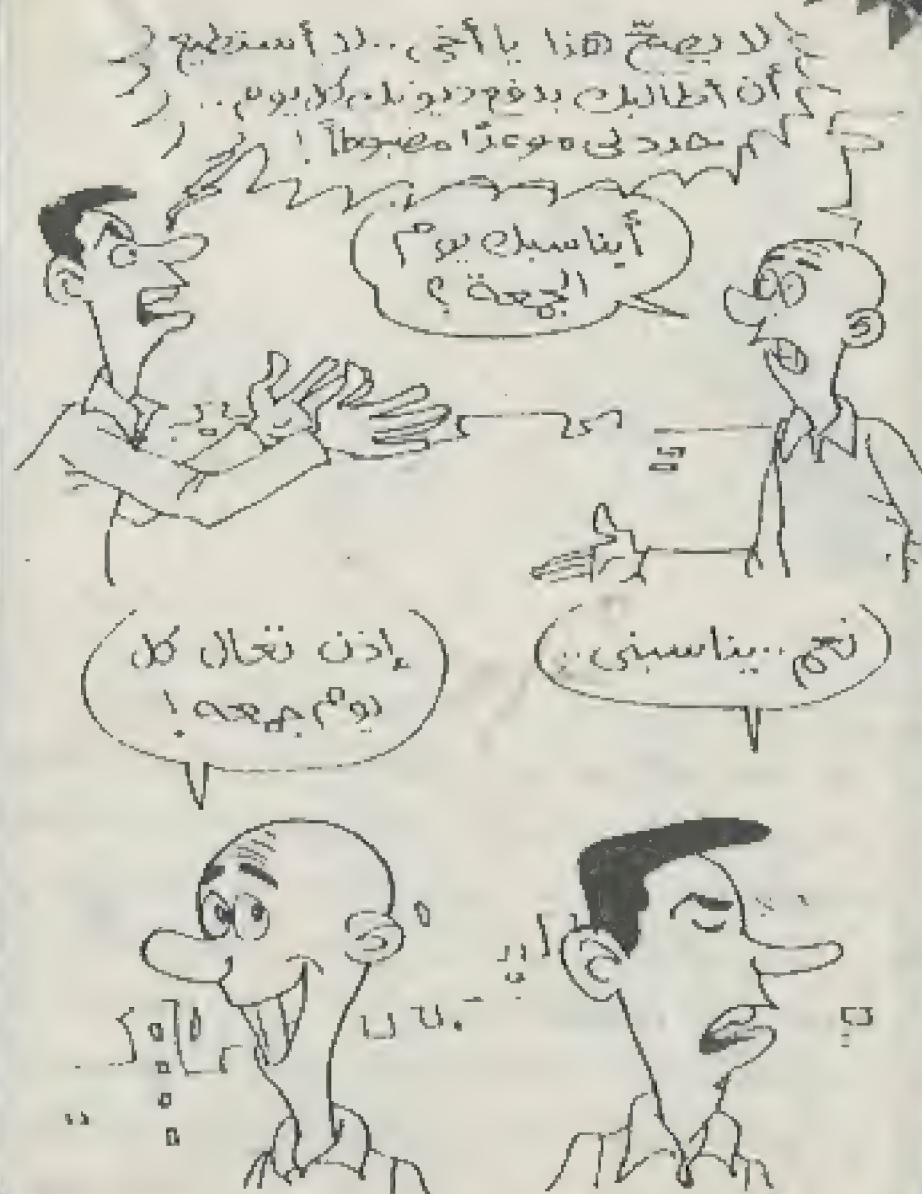 لا يصحّ هذا يا أخى .. لا أستطيع
أن أطالبك بدفع ديونك كل يوم ..
حدد لى موعدًا مضبوطاً !
أيناسبك يوم
الجمعة ؟
نعم .. يناسبنى ..
إذن تعال كل
يوم جمعه !